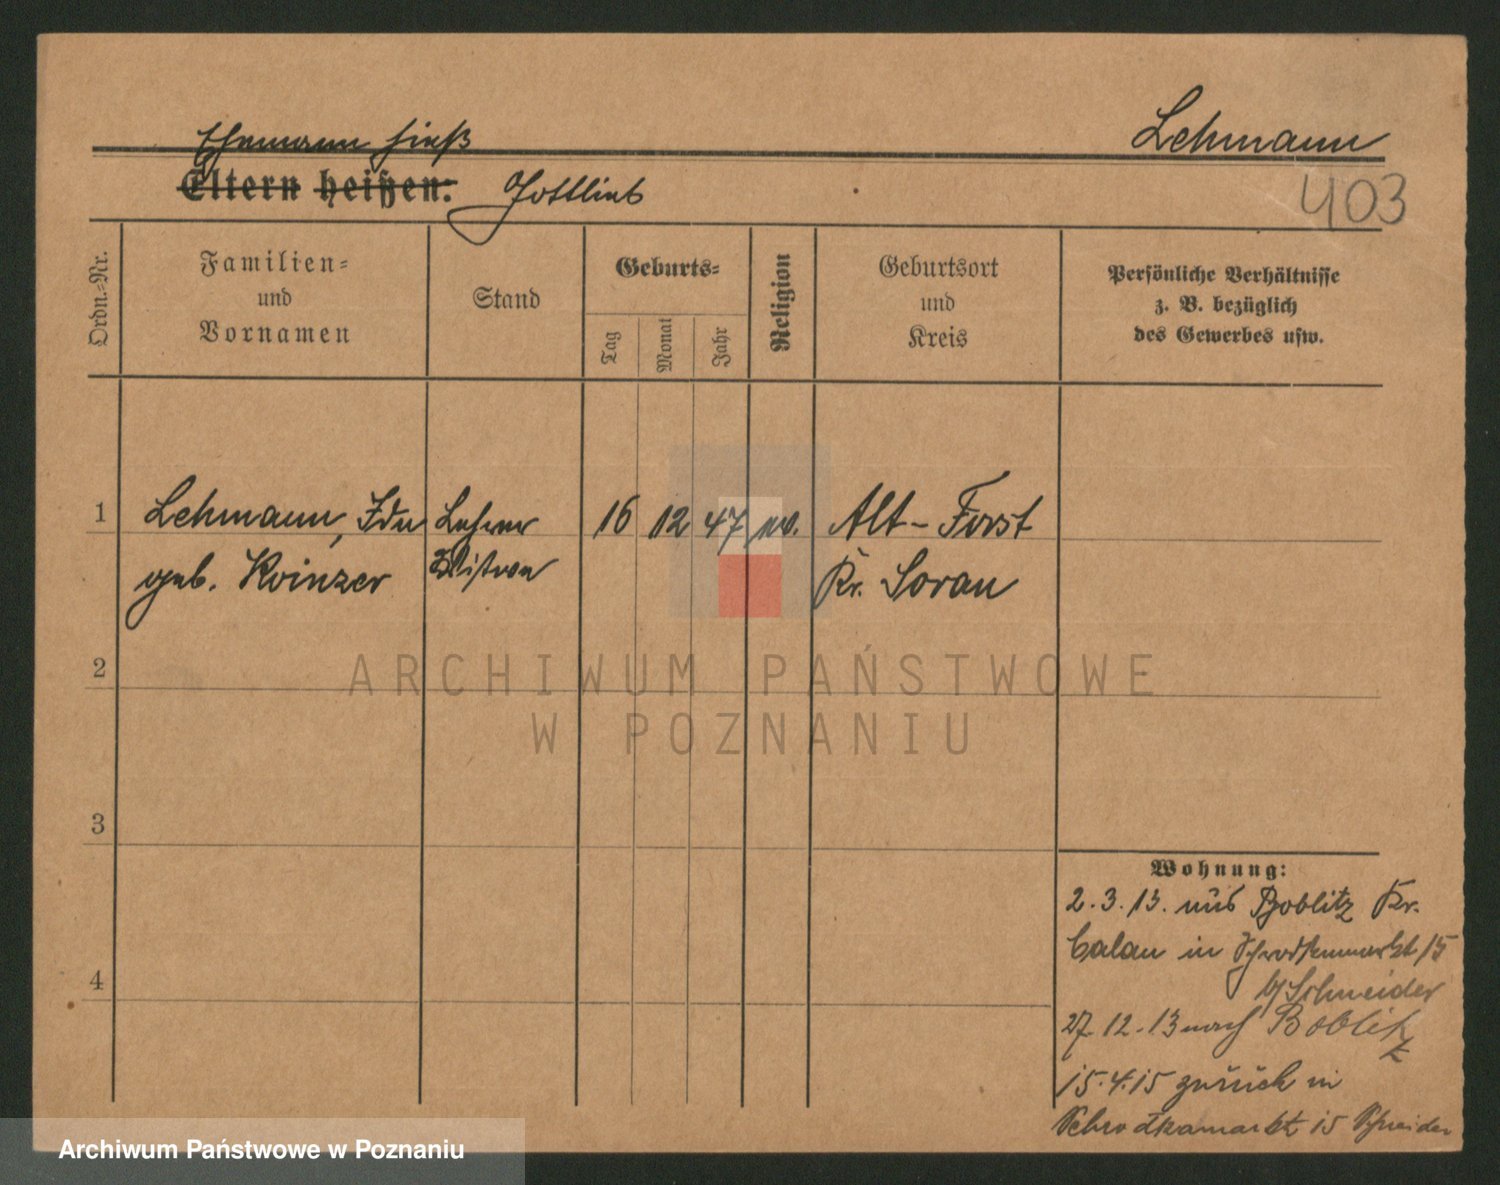 Lehmann
Ehemann hieß
Eltern heißen: Gottlieb
403
Ordn.-Nr.
Familien-
und
Vornamen
Stand
Geburts-
Tag
Monat
Jahr
Religion
Geburtsort
und
Kreis
Persönliche Verhältnisse
z. B. bezüglich
des Gewerbes usw.
1 Lehmann, Ida Lehrer 16 12 47 ev. Alt-Forst
geb. Koinzer Witwe Kr. Sorau
2
3
4
Wohnung:
2.3.13. aus Boblitz Kr.
Calau in Schrodkamarkt 15
b/Schneider
27.12.13 nach Boblitz
15.4.15 zurück in
Schrodkamarkt 15 Schneider
ARCHIWUM PAŃSTWOWE
W POZNANIU
Archiwum Państwowe w Poznaniu